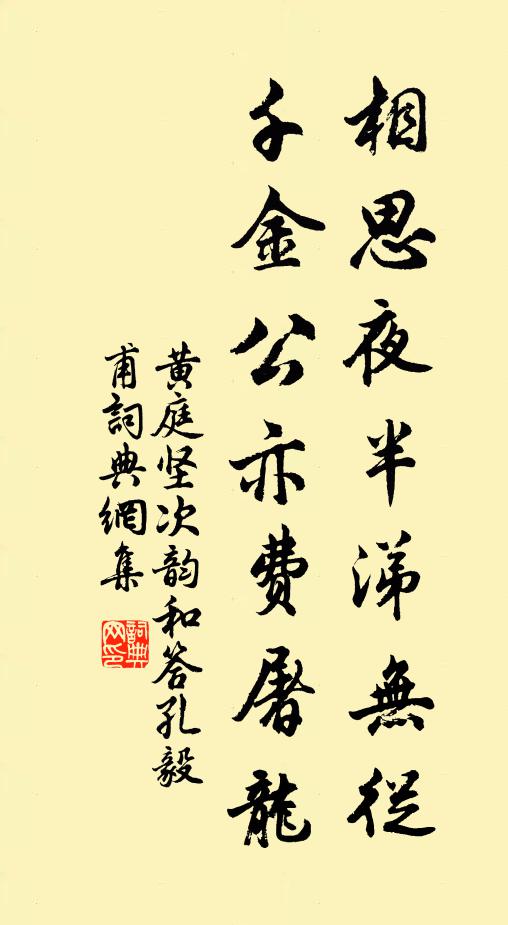 相思夜半涕無從
千金公亦費屠龍
黄庭坚次韵和答孔毅
甫詞典網集
詞典网印